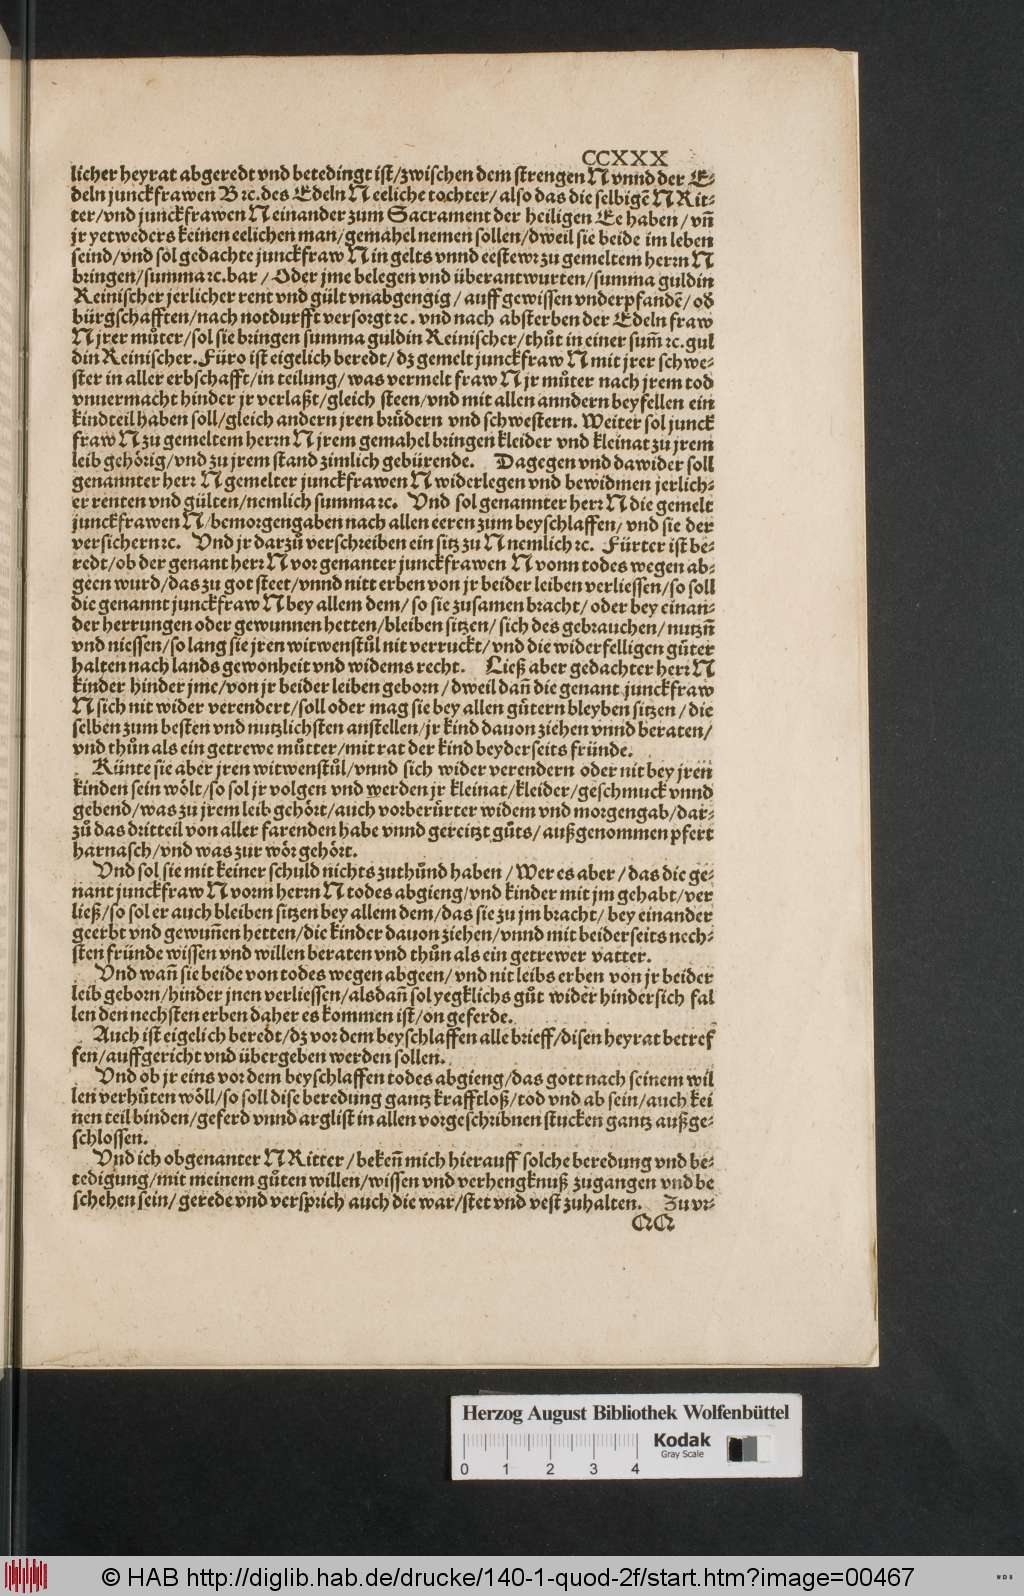 CCXXX
licher heyrat abgeredt vnd betedingt ist/zwischen dem strengen N vnnd der E⸗
deln junckfrawen B ꝛc. des Edeln N eeliche tochter/ also das die selbigẽ N Rit⸗
ter/vnd junckfrawen N einander zum Sacrament der heiligen Ee haben/ vñ
jr yetweders keinen eelichen man/gemahel nemen sollen/dweil sie beide im leben
seind/vnd sol gedachte junckfraw N in gelts vnnd eestewr zu gemeltem herrn N
bringen/summa ꝛc. bar / Oder jme belegen vnd überantwurten/summa guldin
Reinischer jerlicher rent vnd gült vnabgengig/ auff gewissen vnderpfandẽ/ od̾
bürgschafften/nach notdurfft versorgt ꝛc. vnd nach absterben der Edeln fraw
N jrer můter/sol sie bringen summa guldin Reinischer/thůt in einer sum̃ ꝛc. gul
din Reinischer. Füro ist eigelich beredt/ dz gemelt junckfraw N mit jrer schwe⸗
ster in aller erbschafft/in teilung/ was vermelt fraw N jr můter nach jrem tod
vnuermacht hinder jr verlaßt/gleich steen/vnd mit allen anndern beyfellen ein
kindteil haben soll/gleich andern jren brůdern vnd schwestern. Weiter sol junck
fraw N zu gemeltem herrn N jrem gemahel bringen kleider vnd kleinat zu jrem
leib gehörig/vnd zu jrem stand zimlich gebürende. Dagegen vnd dawider soll
genannter herr N gemelter junckfrawen N widerlegen vnd bewidmen jerlich⸗
er renten vnd gülten/nemlich summa ꝛc. Vnd sol genannter herr N die gemelt
junckfrawen N/bemorgengaben nach allen eeren zum beyschlaffen/ vnd sie der
versichern ꝛc. Vnd jr darzů verschreiben ein sitz zu N nemlich ꝛc. Fürter ist be⸗
redt/ob der genant herr N vor genanter junckfrawen N vonn todes wegen ab⸗
geen wurd/das zu got steet/vnnd nitt erben von jr beider leiben verliessen/so soll
die genannt junckfraw N bey allem dem/ so sie zusamen bracht/ oder bey einan⸗
der herrungen oder gewunnen hetten/bleiben sitzen/ sich des gebrauchen/ nutzñ
vnd niessen/so lang sie jren witwenstůl nit verruckt/ vnd die widerfelligen gůter
halten nach lands gewonheit vnd widems recht. Ließ aber gedachter herr N
kinder hinder jme/von jr beider leiben geborn/ dweil dañ die genant junckfraw
N sich nit wider verendert/soll oder mag sie bey allen gůtern bleyben sitzen / die
selben zum besten vnd nutzlichsten anstellen/jr kind dauon ziehen vnnd beraten/
vnd thůn als ein getrewe můtter/mit rat der kind beyderseits fründe.
Rünte sie aber jren witwenstůl/vnnd sich wider verendern oder nit bey jren
kinden sein wölt/so sol jr volgen vnd werden jr kleinat/kleider/geschmuck vnnd
gebend/was zu jrem leib gehört/auch vorberůrter widem vnd morgengab/dar⸗
zů das dritteil von aller farenden habe vnnd gereitzt gůts/ außgenommen pfert
harnasch/vnd was zur wör gehört.
Vnd sol sie mit keiner schuld nichts zuthůnd haben / Wer es aber / das die ge⸗
nant junckfraw N vorm herrn N todes abgieng/vnd kinder mit jm gehabt/ver
ließ/so sol er auch bleiben sitzen bey allem dem/das sie zu jm bracht/ bey einander
geerbt vnd gewuñen hetten/die kinder dauon ziehen/vnnd mit beiderseits nech⸗
sten fründe wissen vnd willen beraten vnd thůn als ein getrewer vatter.
Vnd wañ sie beide von todes wegen abgeen/ vnd nit leibs erben von jr beider
leib geborn/hinder jnen verliessen/alsdañ sol yegklichs gůt wider hindersich fal
len den nechsten erben daher es kommen ist/on geferde.
Auch ist eigelich beredt/dz vor dem beyschlaffen alle brieff/disen heyrat betref
fen/auffgericht vnd übergeben werden sollen.
Vnd ob jr eins vor dem beyschlaffen todes abgieng/das gott nach seinem wil
len verhůten wöll/so soll dise beredung gantz krafftloß/tod vnd ab sein/auch kei
nen teil binden/geferd vnnd arglist in allen vorgeschribnen stucken gantz außge⸗
schlossen.
Vnd ich obgenanter N Ritter/bekeñ mich hierauff solche beredung vnd be⸗
tedigung/mit meinem gůten willen/wissen vnd verhengknuß zugangen vnd be
schehen sein/ gerede vnd versprich auch die war/stet vnd vest zuhalten. Zu vr⸗
QQ
Herzog August Bibliothek Wolfenbüttel
Kodak
Gray Scale
0 1 2 3 4
© HAB http://diglib.hab.de/drucke/140-1-quod-2f/start.htm?image=00467